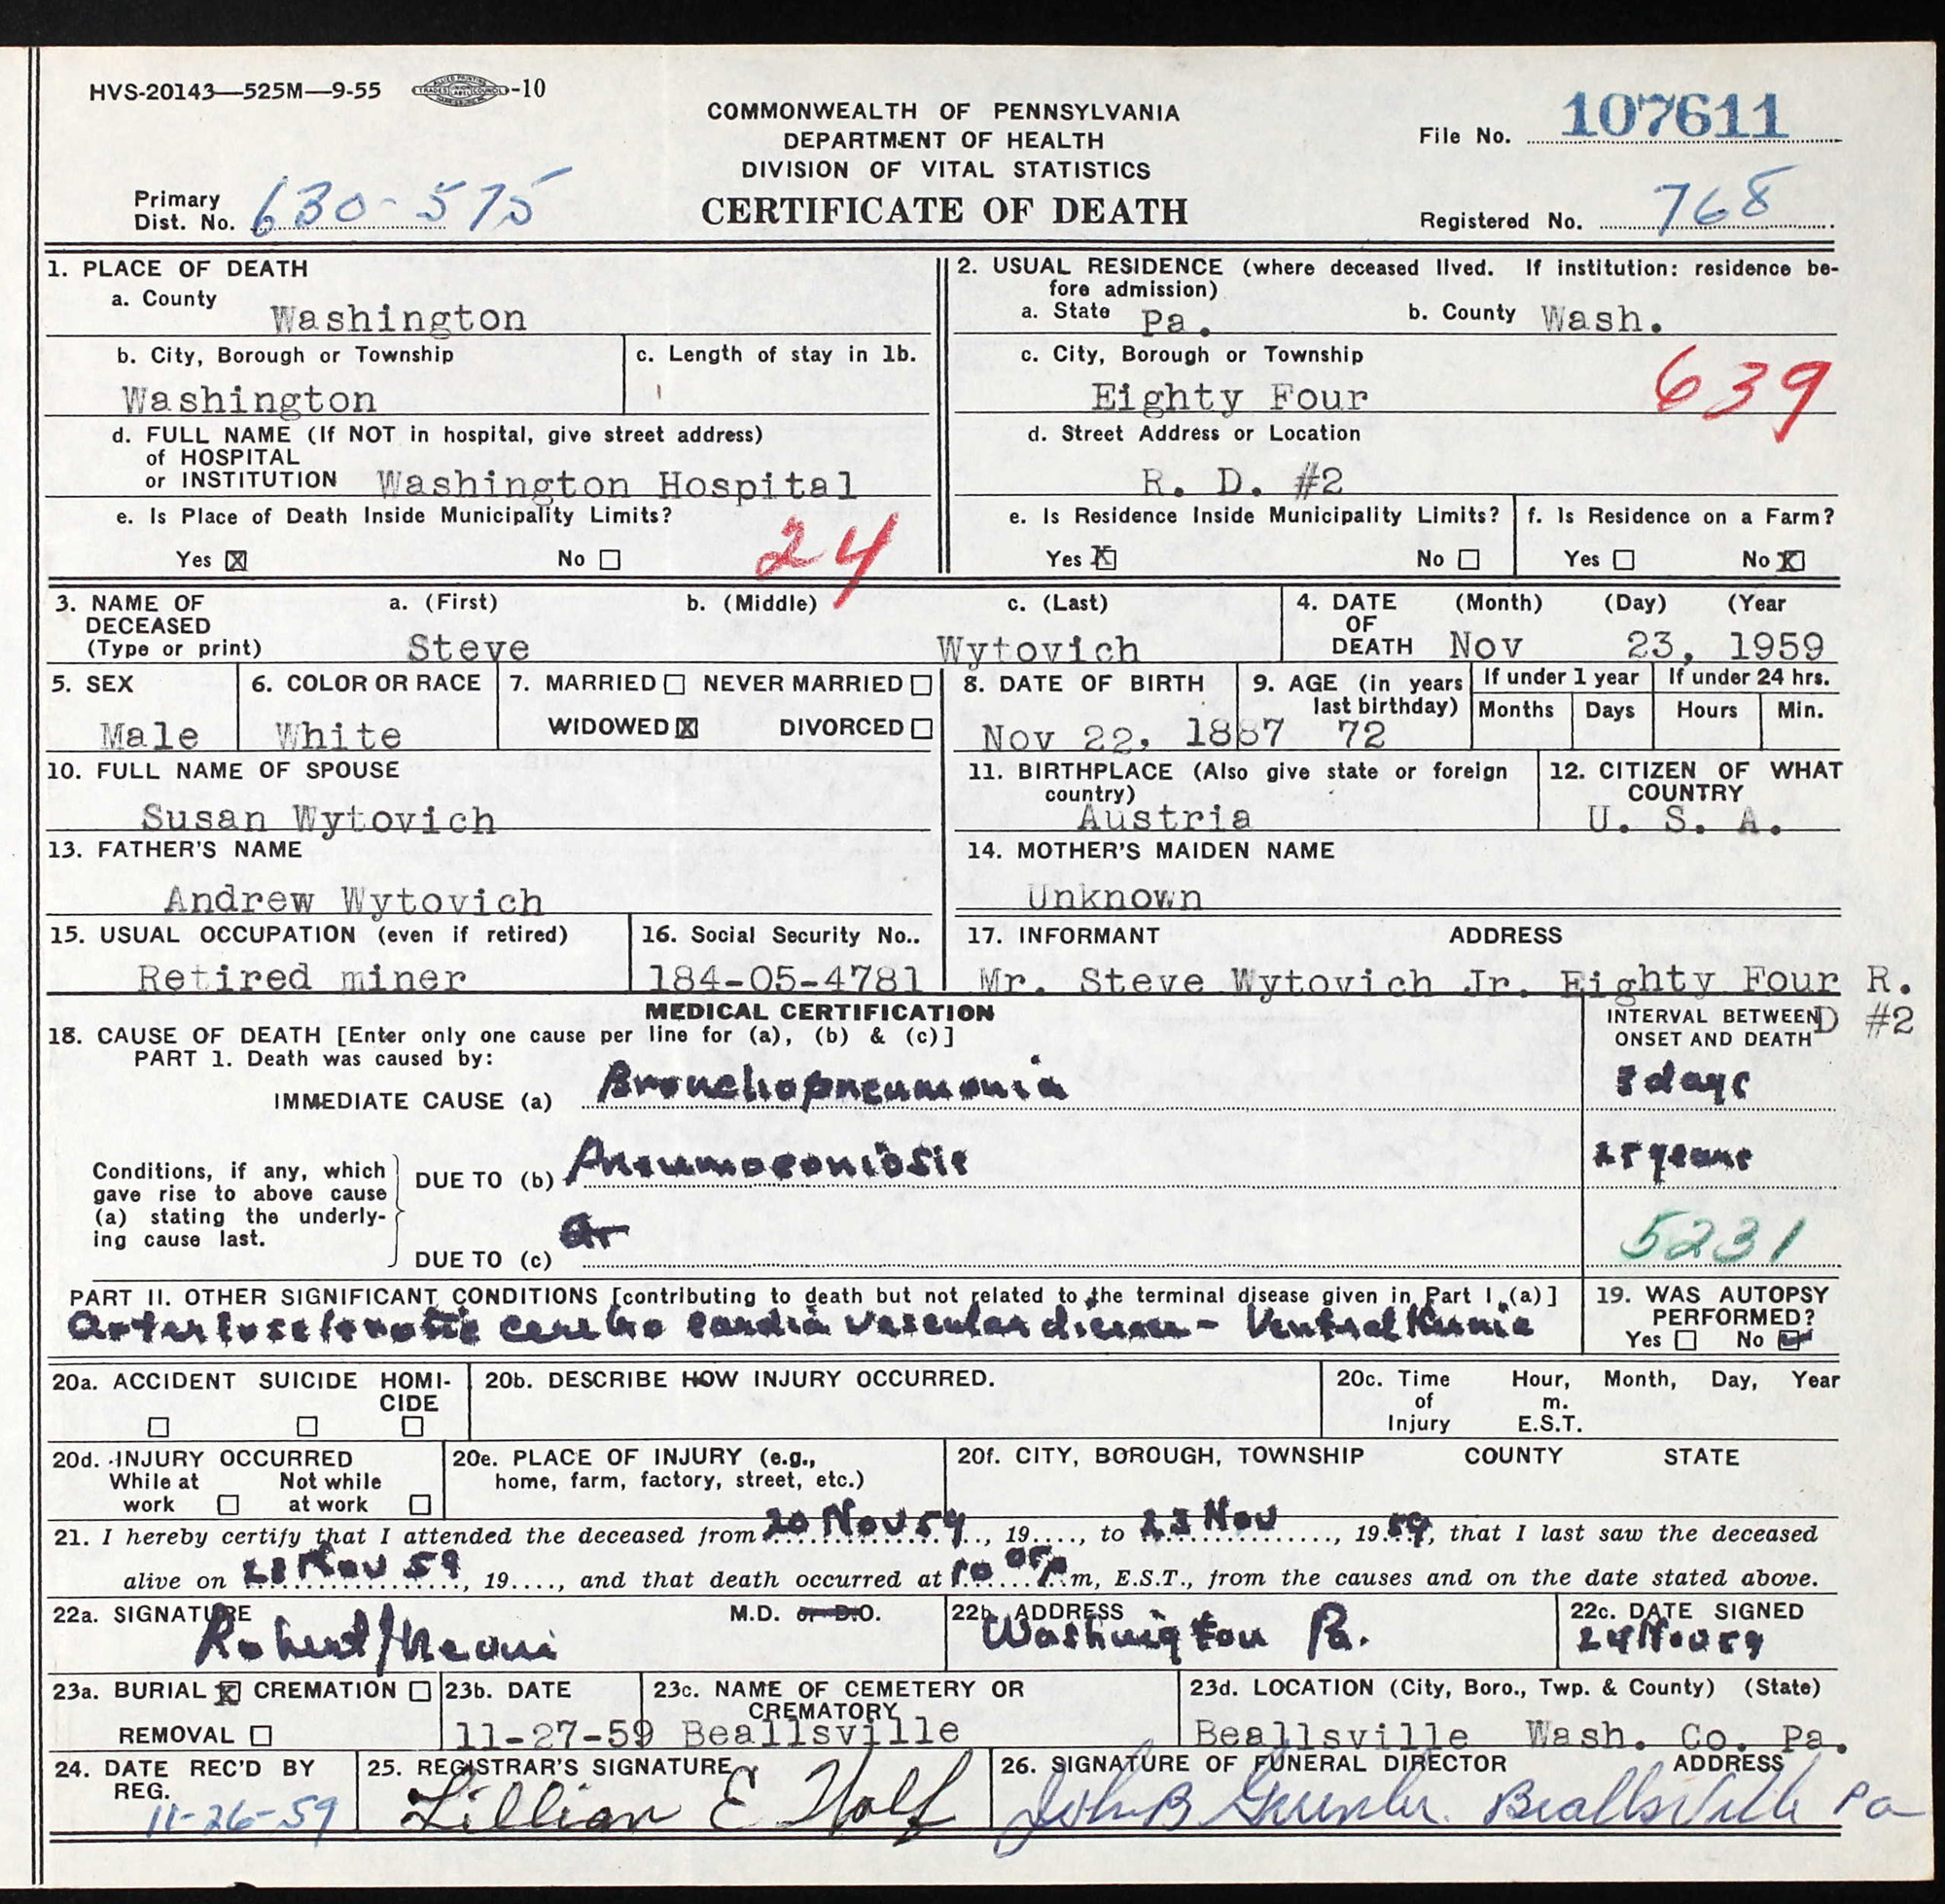 HVS-20143—525M—9-55 -10
COMMONWEALTH OF PENNSYLVANIA
DEPARTMENT OF HEALTH
DIVISION OF VITAL STATISTICS
CERTIFICATE OF DEATH
File No. 107611
Primary
Dist. No. 630-575
Registered No. 768
1. PLACE OF DEATH
a. County
Washington
b. City, Borough or Township
Washington
c. Length of stay in 1b.
d. FULL NAME (If NOT in hospital, give street address)
of HOSPITAL
or INSTITUTION Washington Hospital
e. Is Place of Death Inside Municipality Limits?
Yes ☒ No ☐
24
2. USUAL RESIDENCE (where deceased lived. If institution: residence be-
fore admission)
a. State Pa. b. County Wash.
c. City, Borough or Township
Eighty Four
639
d. Street Address or Location
R. D. #2
e. Is Residence Inside Municipality Limits?
Yes ☒ No ☐
f. Is Residence on a Farm?
Yes ☐ No ☒
3. NAME OF DECEASED (Type or print)
a. (First) b. (Middle) c. (Last)
Steve Wytovich
4. DATE OF DEATH (Month) (Day) (Year
Nov 23, 1959
5. SEX
Male
6. COLOR OR RACE
White
7. MARRIED ☐ NEVER MARRIED ☐
WIDOWED ☒ DIVORCED ☐
8. DATE OF BIRTH
Nov 22, 1887
9. AGE (in years last birthday)
72
If under 1 year
Months Days
If under 24 hrs.
Hours Min.
10. FULL NAME OF SPOUSE
Susan Wytovich
11. BIRTHPLACE (Also give state or foreign country)
Austria
12. CITIZEN OF WHAT COUNTRY
U. S. A.
13. FATHER'S NAME
Andrew Wytovich
14. MOTHER'S MAIDEN NAME
Unknown
15. USUAL OCCUPATION (even if retired)
Retired miner
16. Social Security No..
184-05-4781
17. INFORMANT ADDRESS
Mr. Steve Wytovich Jr. Eighty Four R.
D #2
MEDICAL CERTIFICATION
18. CAUSE OF DEATH [Enter only one cause per line for (a), (b) & (c)]
PART 1. Death was caused by:
INTERVAL BETWEEN
ONSET AND DEATH
IMMEDIATE CAUSE (a) Bronchopneumonia 3 days
Conditions, if any, which
gave rise to above cause
(a) stating the underly-
ing cause last.
DUE TO (b) Pneumoconiosis 25 years
DUE TO (c) Ar
5231
PART II. OTHER SIGNIFICANT CONDITIONS [contributing to death but not related to the terminal disease given in Part I (a)]
Arteriosclerotic cerebro cardia vascular disease - Ventral Hernia
19. WAS AUTOPSY
PERFORMED?
Yes ☐ No ☒
20a. ACCIDENT SUICIDE HOMI-
CIDE
☐ ☐ ☐
20b. DESCRIBE HOW INJURY OCCURRED.
20c. Time of Injury Hour, m. E.S.T. Month, Day, Year
20d. INJURY OCCURRED
While at work ☐ Not while at work ☐
20e. PLACE OF INJURY (e.g.,
home, farm, factory, street, etc.)
20f. CITY, BOROUGH, TOWNSHIP COUNTY STATE
21. I hereby certify that I attended the deceased from 20 Nov 59, 19...., to 23 Nov, 19.59, that I last saw the deceased
alive on 23 Nov 59, 19...., and that death occurred at 10 05 P.m, E.S.T., from the causes and on the date stated above.
22a. SIGNATURE M.D. or D.O.
Robert
22b. ADDRESS
Washington Pa.
22c. DATE SIGNED
24 Nov 59
23a. BURIAL ☒ CREMATION ☐
REMOVAL ☐
23b. DATE
11-27-59
23c. NAME OF CEMETERY OR
CREMATORY
Beallsville
23d. LOCATION (City, Boro., Twp. & County) (State)
Beallsville Wash. Co. Pa.
24. DATE REC'D BY
REG.
11-26-59
25. REGISTRAR'S SIGNATURE
Lillian E Holf
26. SIGNATURE OF FUNERAL DIRECTOR ADDRESS
John B Beallsville Pa